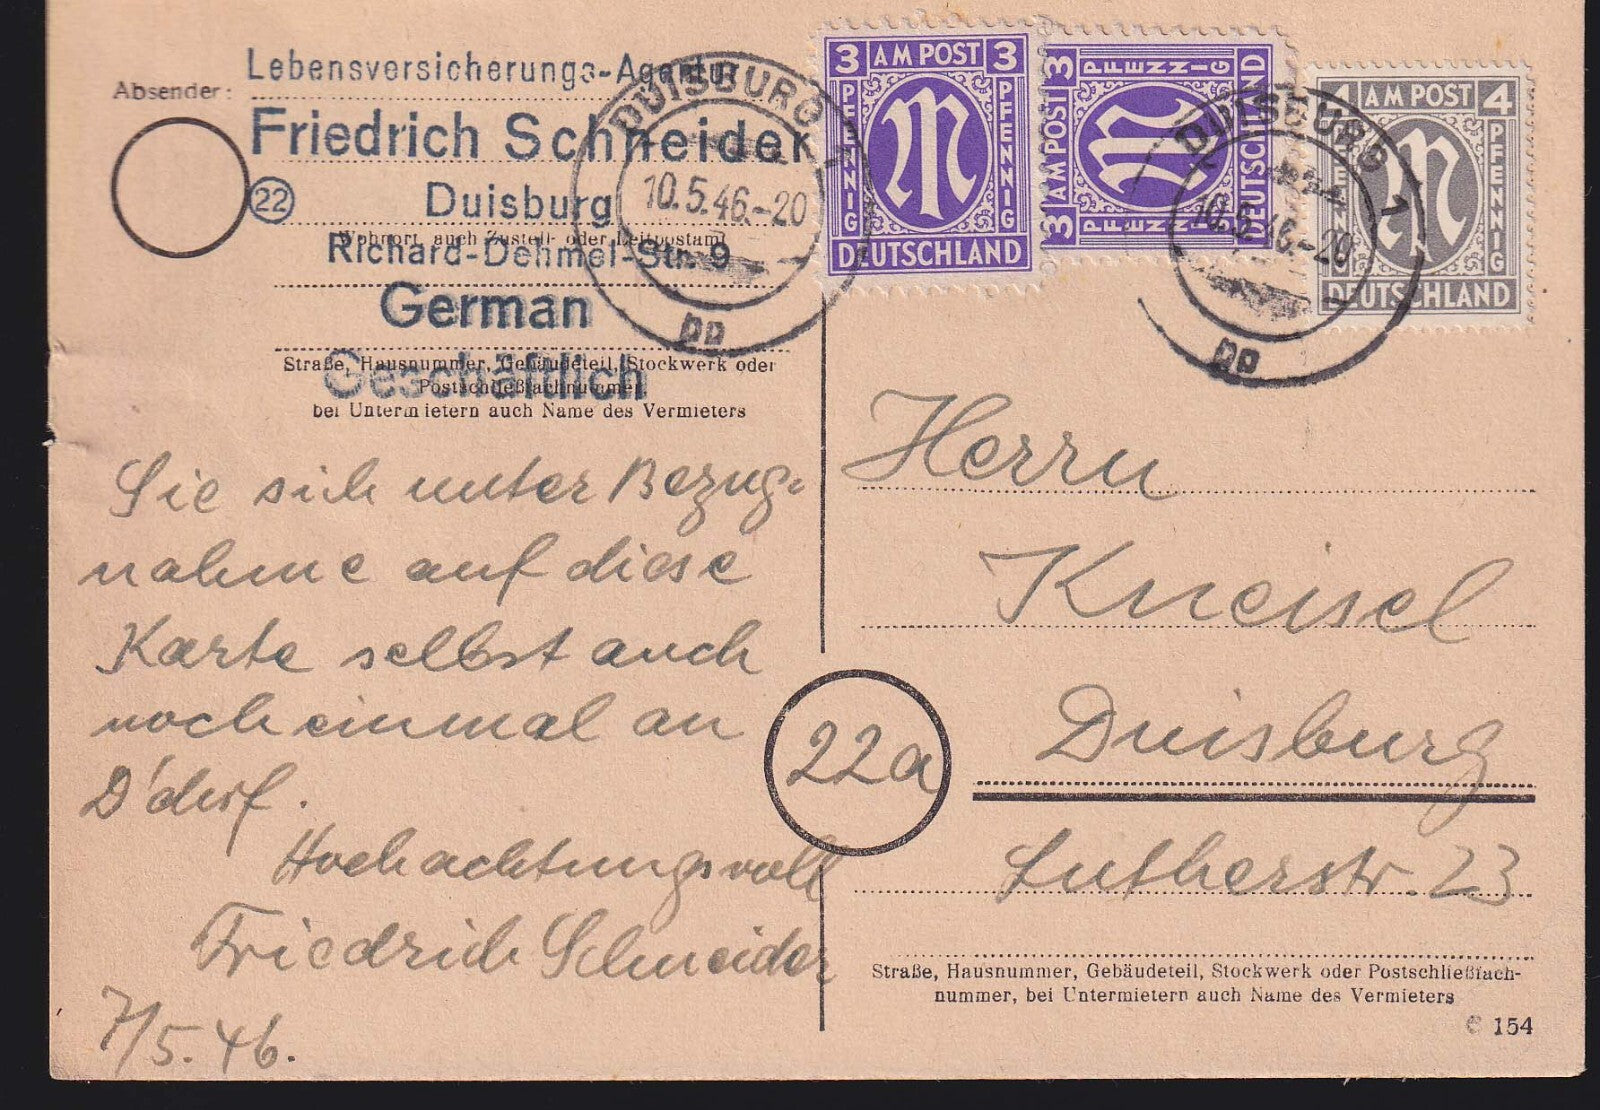 Lebensversicherungs-Agentur
Absender:
Friedrich Schneider
22 Duisburg
Wohnort, auch Zustell- oder Leitpostamt
Richard-Dehmel-Str. 9
German
Straße, Hausnummer, Gebäudeteil, Stockwerk oder
Geschäftlich
Postschließfachnummer
bei Untermietern auch Name des Vermieters
Sie sich unter Bezug-
nahme auf diese
Karte selbst auch
noch einmal an
D'dorf.
Hochachtungsvoll
Friedrich Schneider
7/5.46.
DUISBURG 1
10.5.46.-20
pp
3 AM POST 3
PFENNIG PFENNIG
M
DEUTSCHLAND
3 AM POST 3
PFENNIG PFENNIG
M
DEUTSCHLAND
4 AM POST 4
PFENNIG PFENNIG
M
DEUTSCHLAND
DUISBURG 1
10.5.46.-20
pp
Herrn
Kneisel
22a Duisburg
Lutherstr. 23
Straße, Hausnummer, Gebäudeteil, Stockwerk oder Postschließfach-
nummer, bei Untermietern auch Name des Vermieters
154